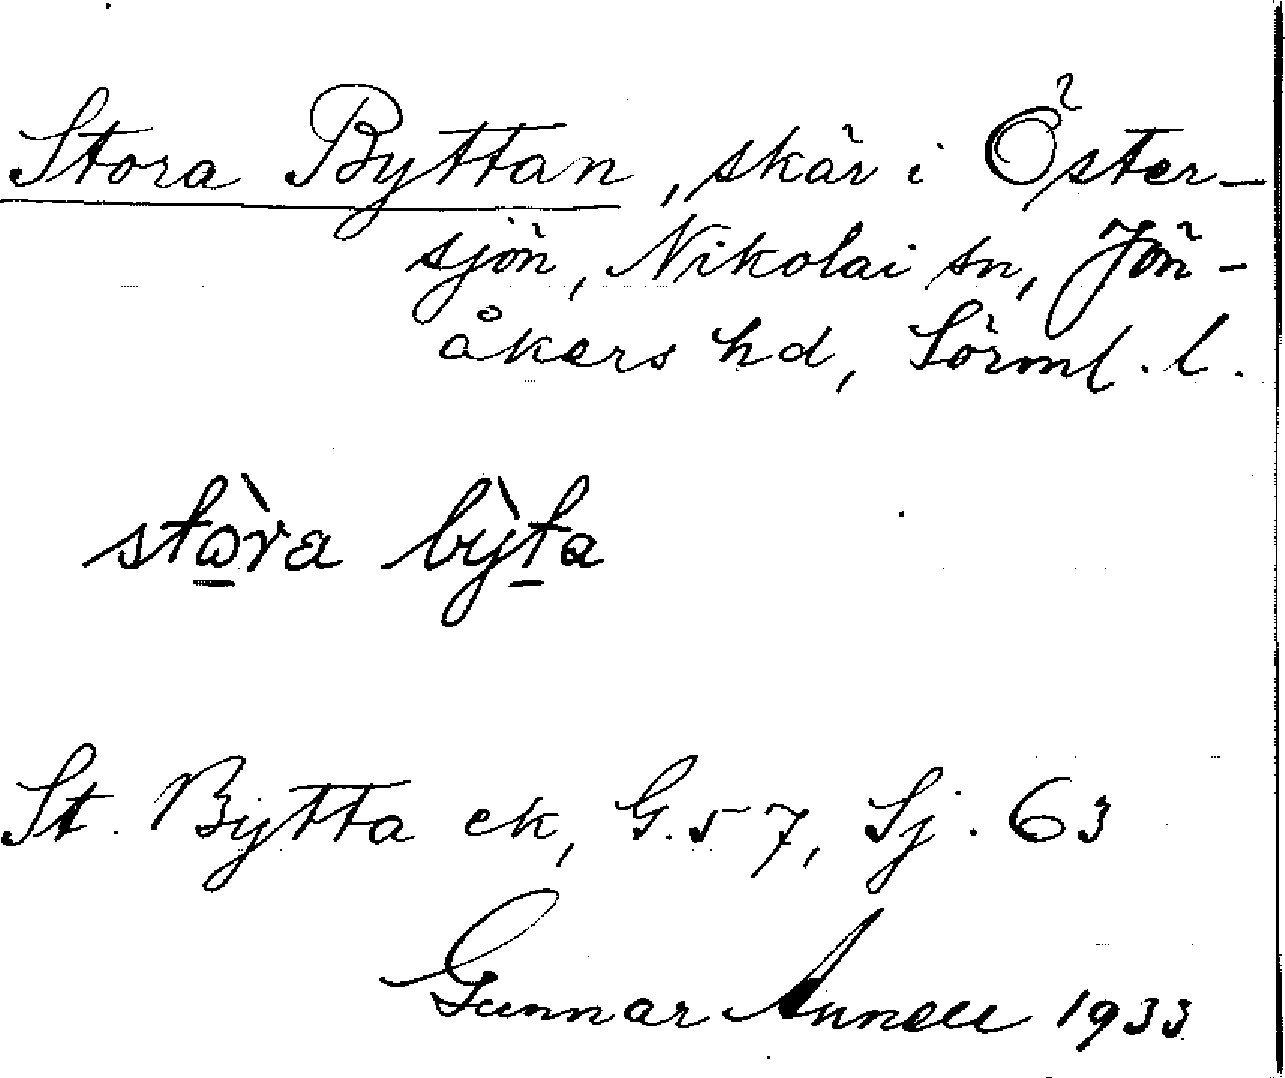 Stora Byttan, skär i Öster-
sjön, Nikolai sn, Jön-
åkers hd, Sörml. l.
stⱺ̀ra bỳta
St. Bytta ek, G. 57, Sj. 63
Gunnar Annell 1933